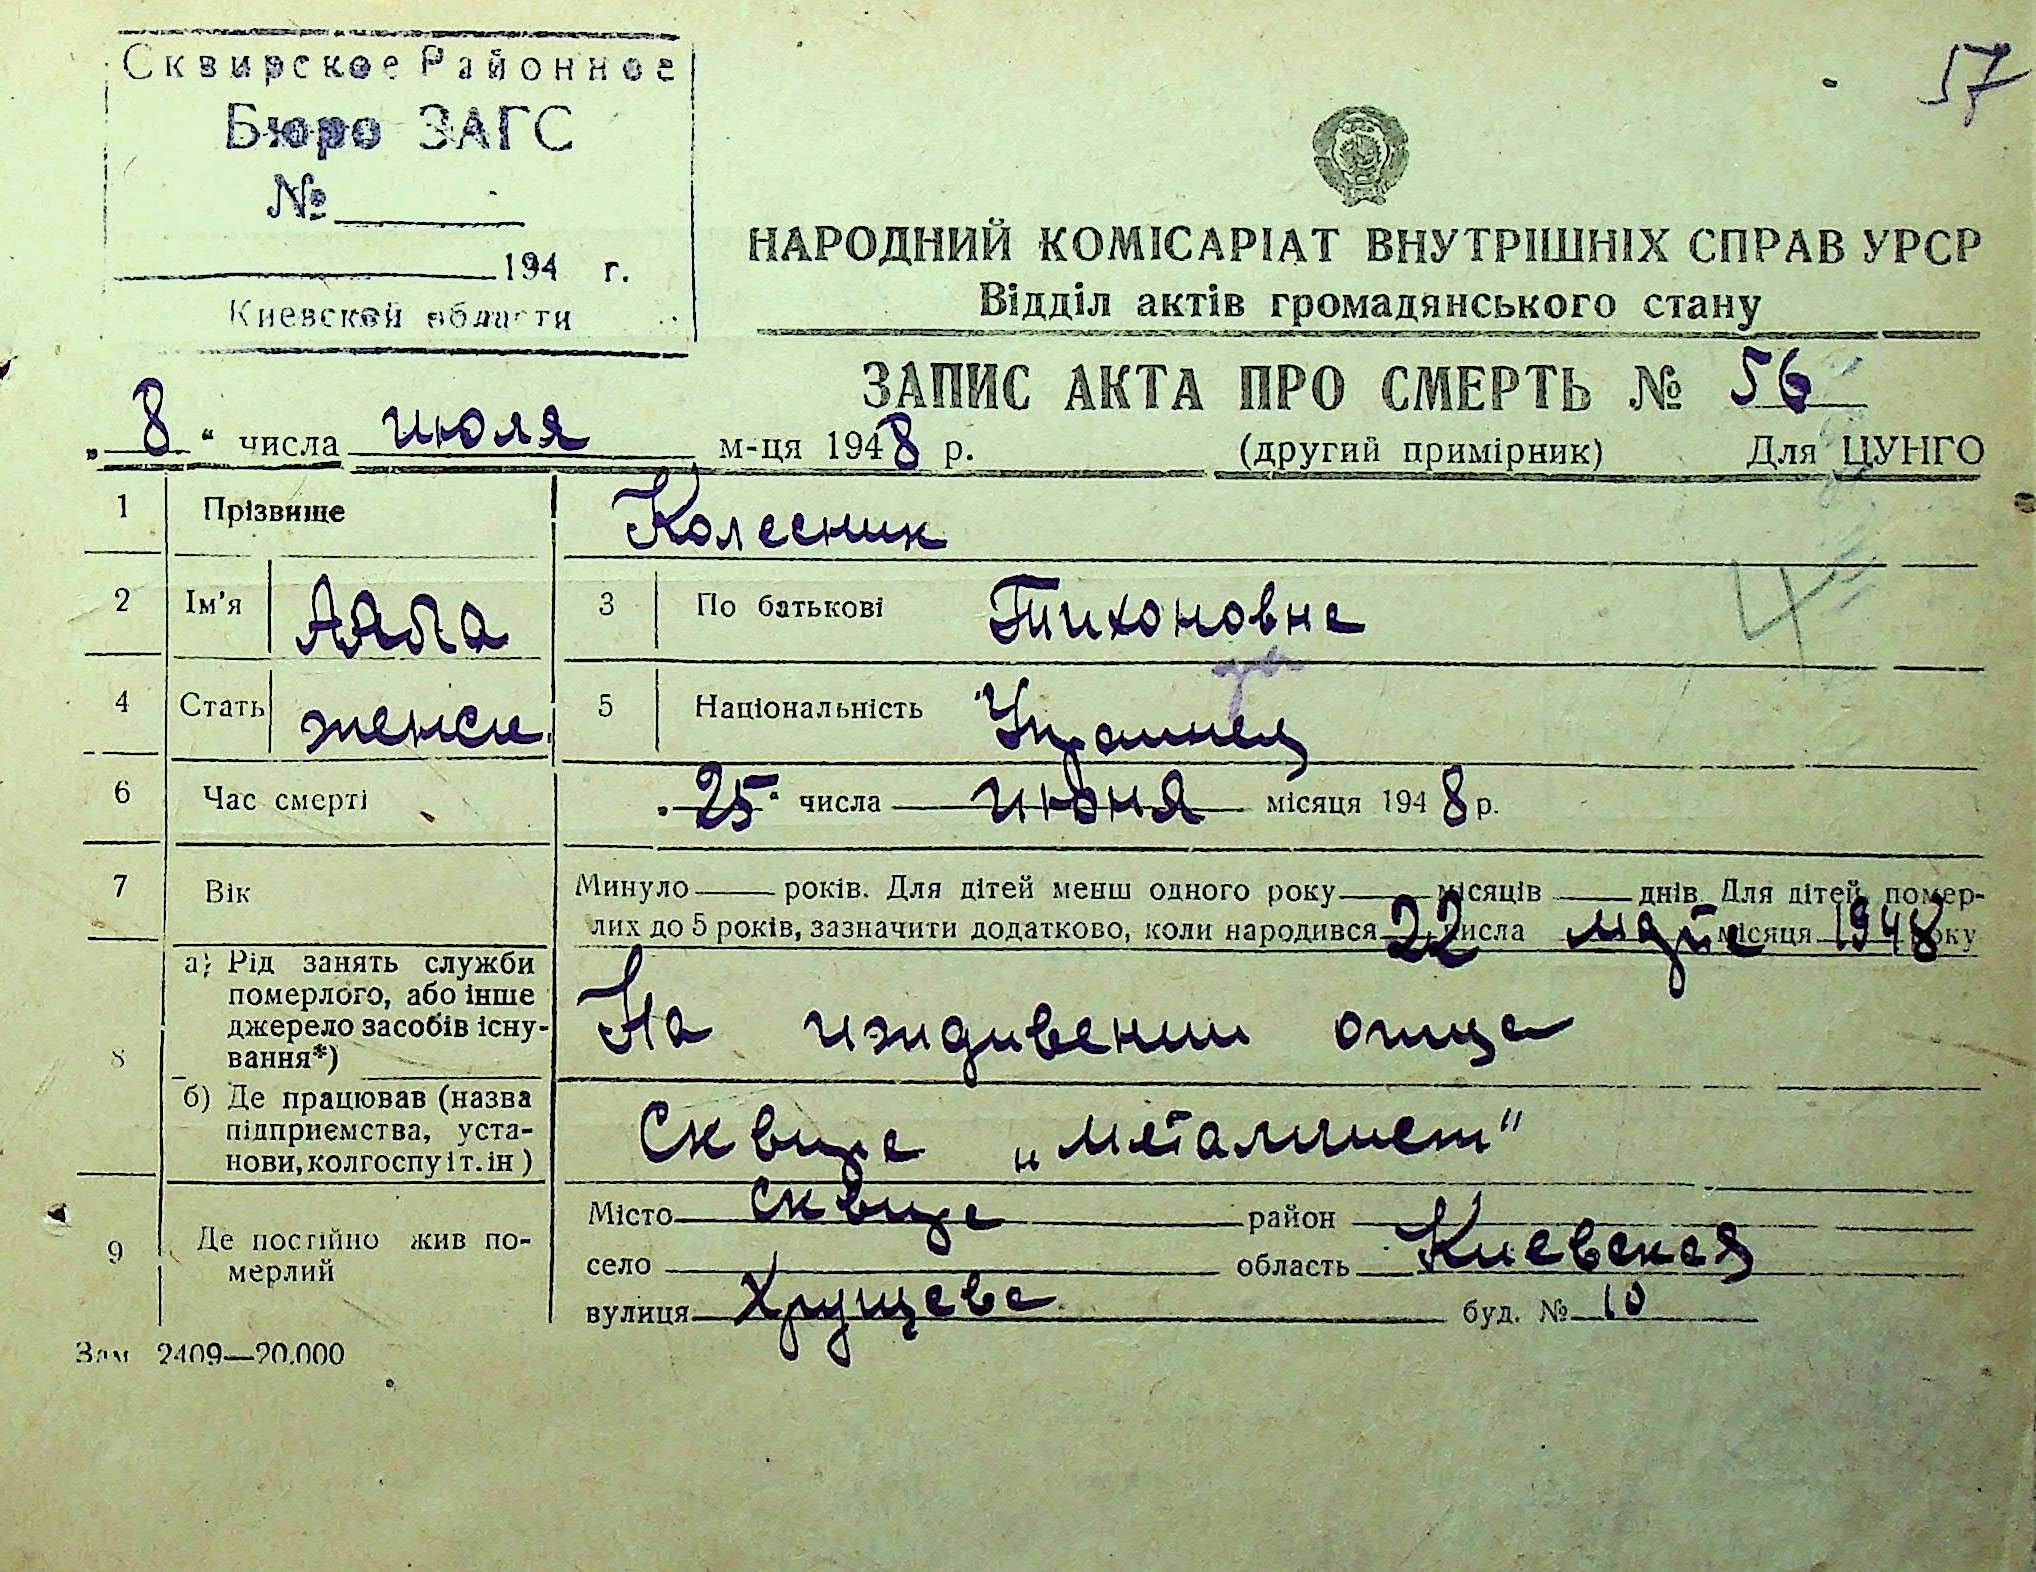 Сквирское Районное
Бюро ЗАГС
№
194 г.
Киевской области
57
НАРОДНИЙ КОМІСАРІАТ ВНУТРІШНІХ СПРАВ УРСР
Відділ актів громадянського стану
ЗАПИС АКТА ПРО СМЕРТЬ № 56
„8“ числа июля м-ця 1948 р. (другий примірник) Для ЦУНГО
1 Прізвище Колесник
2 Ім'я 3 По батькові Тихоновна
4 Стать женск. 5 Національність Украинец
6 Час смерті „25“ числа июня місяця 1948 р.
7 Вік Минуло років. Для дітей менш одного року місяців днів. Для дітей, помер-
лих до 5 років, зазначити додатково, коли народився 22 числа мая місяця 1948 року
8 а) Рід занять служби
померлого, або інше
джерело засобів існу-
вання*) На иждивении отца
б) Де працював (назва
підприємства, уста-
нови, колгоспу і т. ін) Сквира „Металлист"
9 Де постійно жив по-
мерлий
Місто Сквира район
село область Киевская
вулиця Хрущева буд. № 10
Зам 2409—20.000